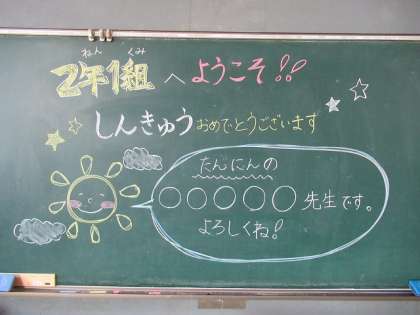 ねん くみ
2年1組へようこそ!!
しんきゅうおめでとうございます
たんにんの
○○○○○先生です。
よろしくね!